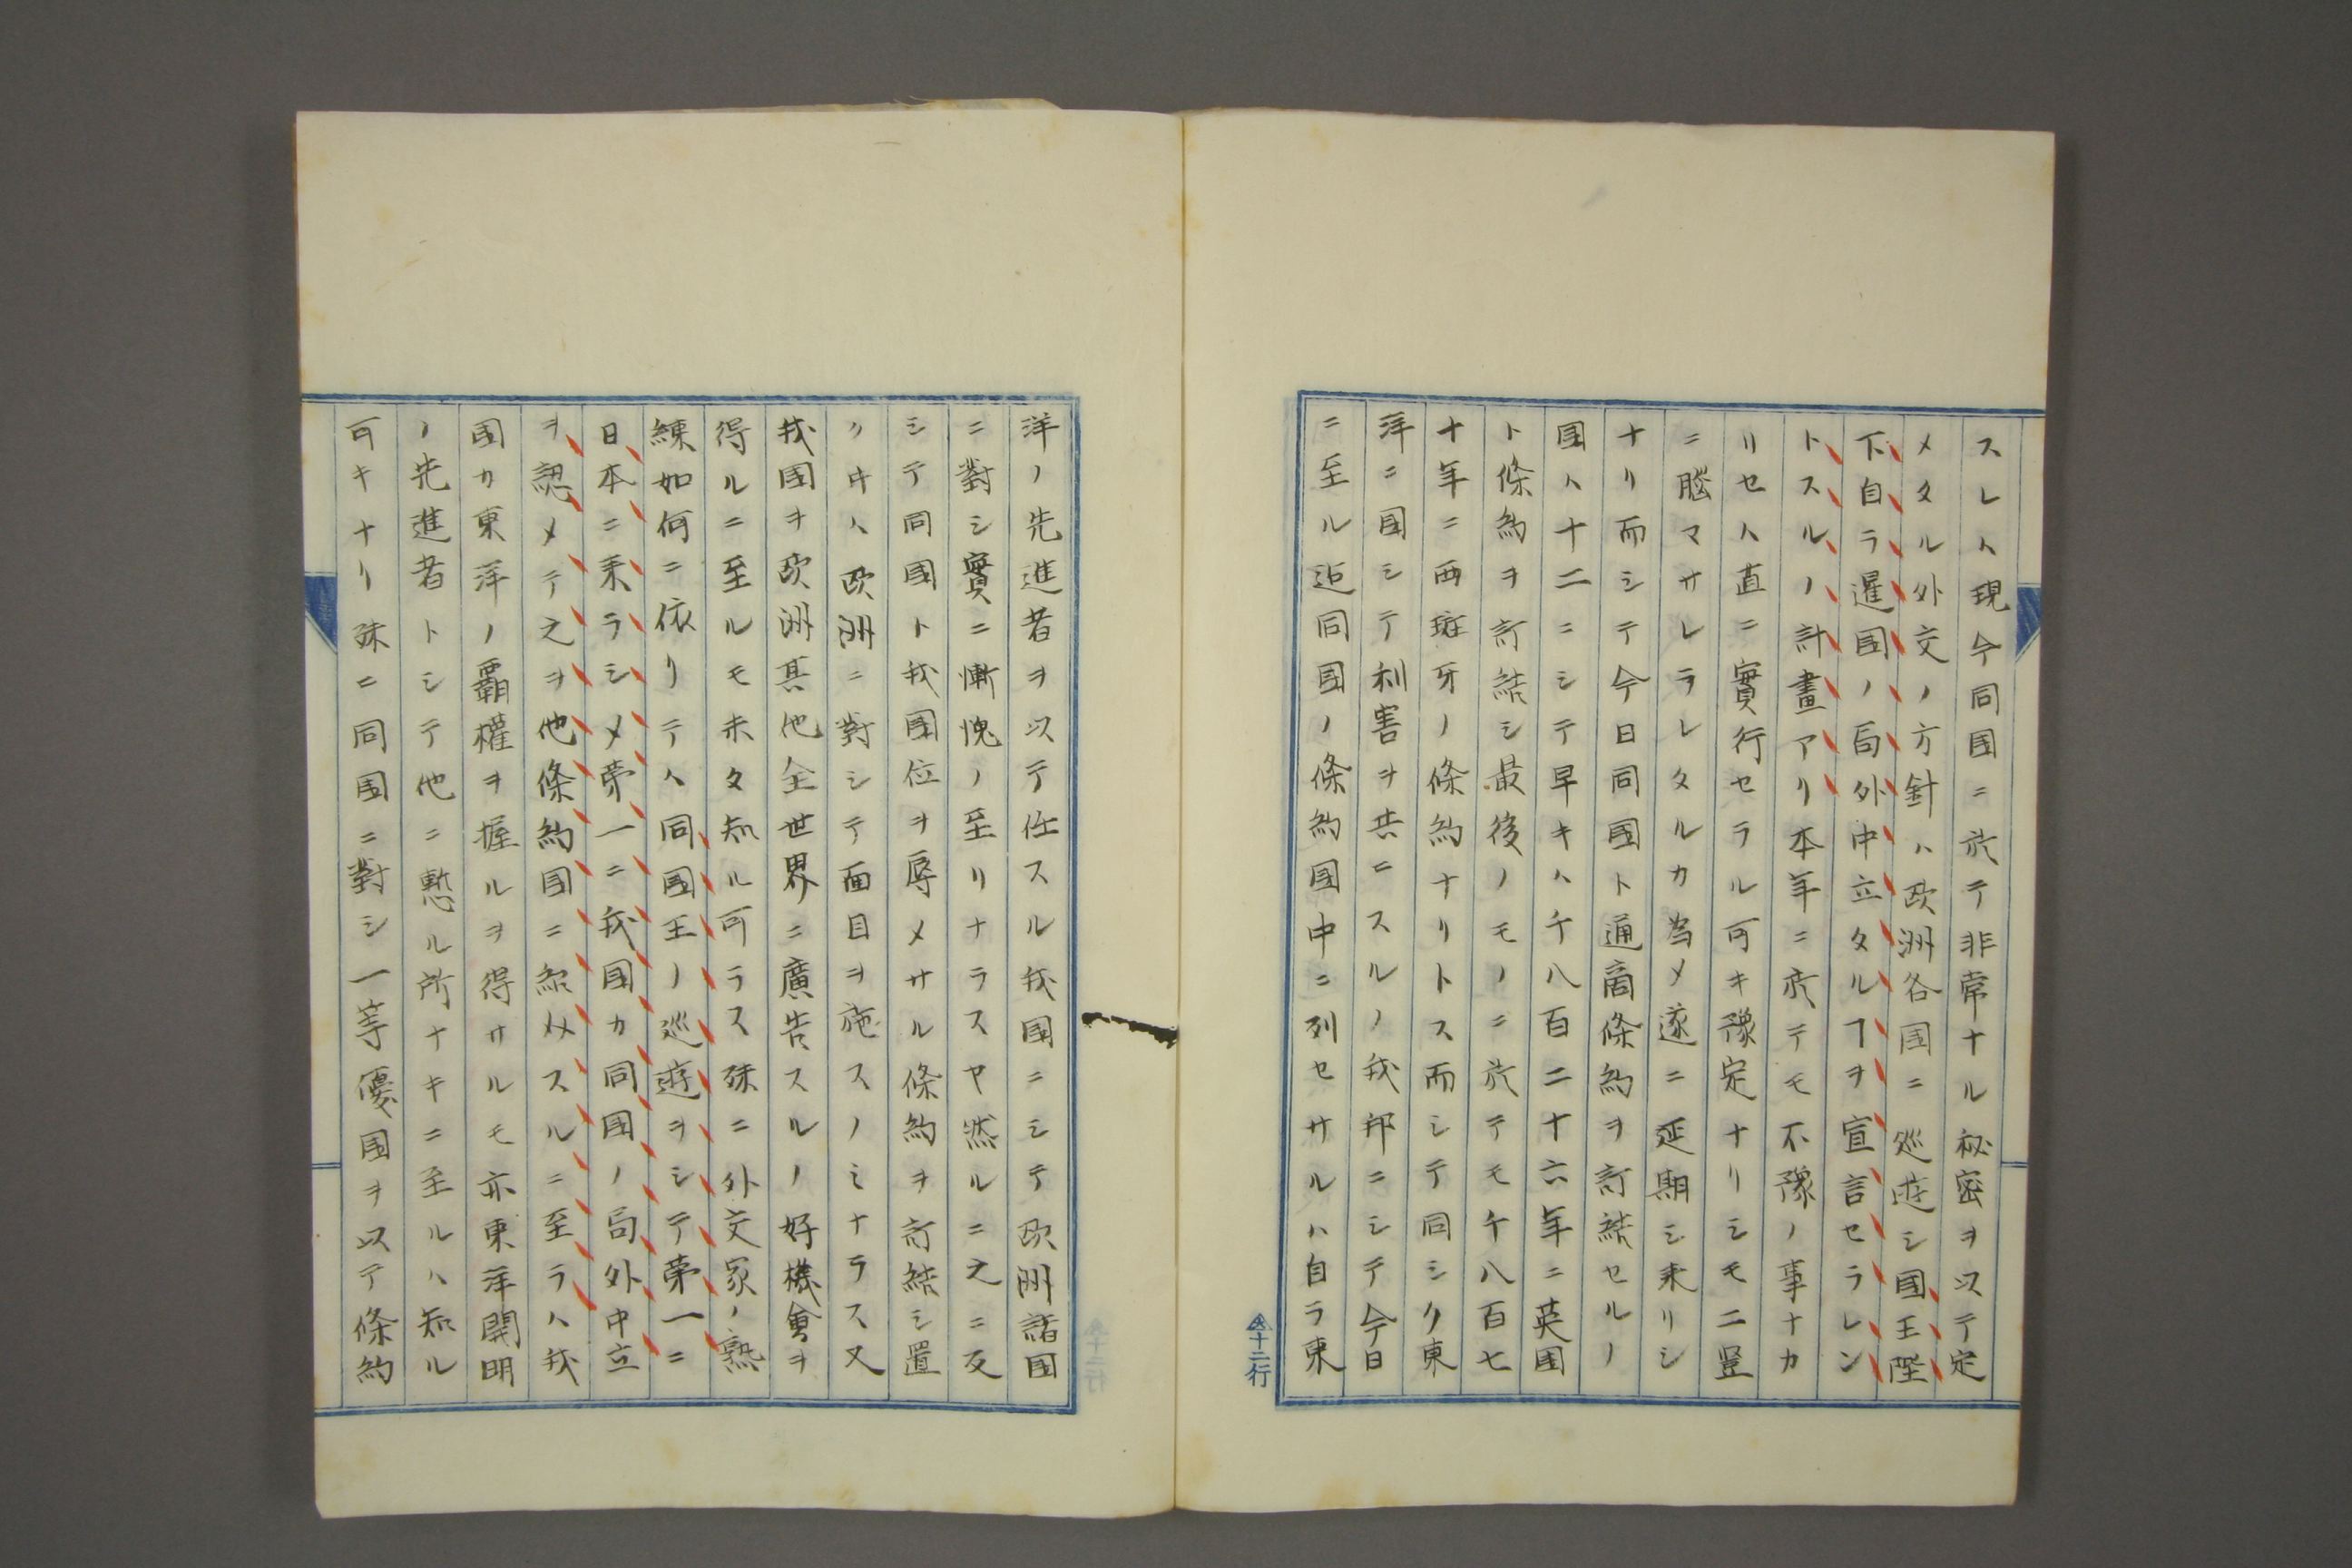 スレハ現今同国ニ於テ非常ナル秘密ヲ以テ定
メタル外交ノ方針ハ欧洲各国ニ巡遊シ國王陛
下自ラ暹国ノ局外中立タルヿヲ宣言セラレン
トスルノ計畫アリ本年ニ於テモ不豫ノ事ナカ
リセハ直ニ實行セラル可キ豫定ナリシモ二豎
ニ腦マサレラレタルカ為メ遂ニ延期シ来リシ
ナリ而シテ今日同國ト通商條約ヲ訂結セルノ
国ハ十二ニシテ早キハ千八百二十六年ニ英国
ト條約ヲ訂結シ最後ノモノニ於テモ千八百七
十年ニ西班牙ノ條約ナリトス而シテ同シク東
洋ニ国シテ利害ヲ共ニスルノ我邦ニシテ今日
ニ至ル迠同国ノ條約國中ニ列セサルハ自ラ東
洋ノ先進者ヲ以テ任スル我国ニシテ欧洲諸国
ニ對シ實ニ慚愧ノ至リナラスヤ然ルニ之ニ反
シテ同國ト我国位ヲ辱メサル條約ヲ訂結シ置
クキハ欧洲ニ對シテ面目ヲ施スノミナラス又
我国ヲ欧洲其他全世界ニ廣告スルノ好機會ヲ
得ルニ至ルモ未タ知ル可ラス殊ニ外交家ノ熟
練如何ニ依リテハ同国王ノ巡遊ヲシテ第一ニ
日本ニ来ラシメ第一ニ我国カ同国ノ局外中立
ヲ認メテ之ヲ他條約国ニ紹介スルニ至ラハ我
国カ東洋ノ覇權ヲ握ルヲ得サルモ亦東洋開明
ノ先進者トシテ他ニ慙ル所ナキニ至ルハ知ル
可キナリ殊ニ同国ニ對シ一等優国ヲ以テ條約
十二行